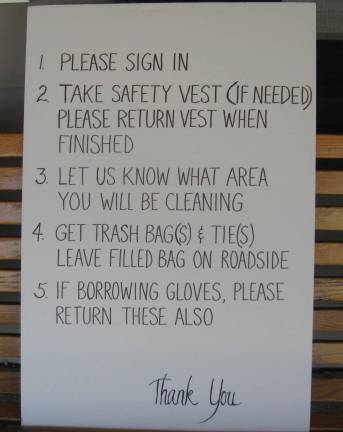 1. PLEASE SIGN IN
2. TAKE SAFETY VEST (IF NEEDED)
PLEASE RETURN VEST WHEN
FINISHED
3. LET US KNOW WHAT AREA
YOU WILL BE CLEANING
4. GET TRASH BAG(S) & TIE(S)
LEAVE FILLED BAG ON ROADSIDE
5. IF BORROWING GLOVES, PLEASE
RETURN THESE ALSO
Thank You